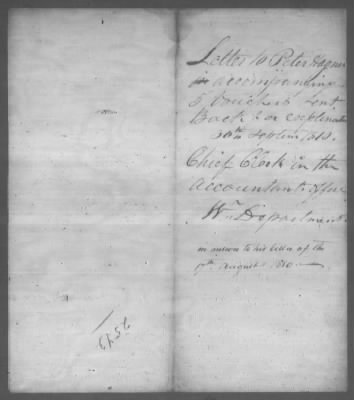 Letter to Peter Hagner
accompanying
5 Vouchers sent
Back for explanation
30th Septem
Chief Clerk in the
Accountants office
Wr Department
in answer to his letter of the
9th August 1810